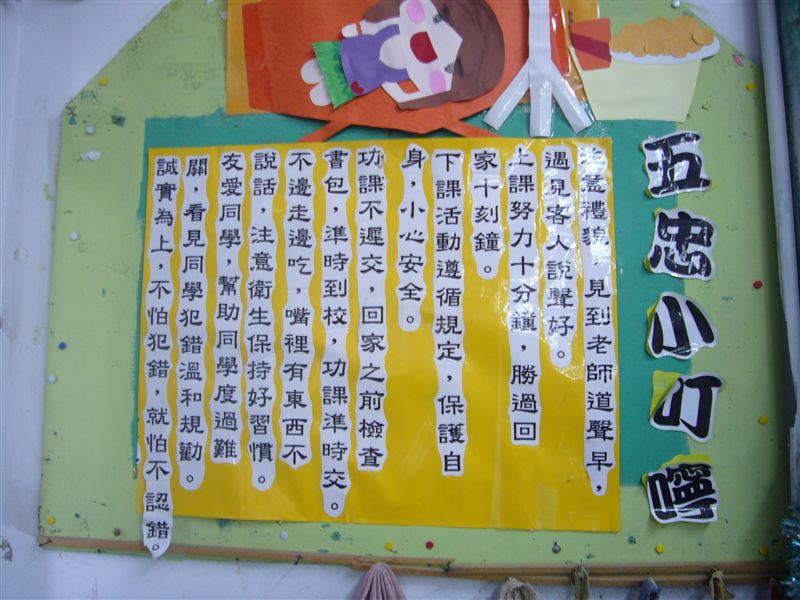 五忠小叮嚀
注意禮貌，見到老師道聲早，
遇見客人說聲好。
上課努力十分鐘，勝過回
家十刻鐘。
下課活動遵循規定，保護自
身，小心安全。
功課不遲交，回家之前檢查
書包，準時到校，功課準時交。
不邊走邊吃，嘴裡有東西不
說話，注意衛生保持好習慣。
友愛同學，幫助同學度過難
關，看見同學犯錯溫和規勸。
誠實為上，不怕犯錯，就怕不認錯。